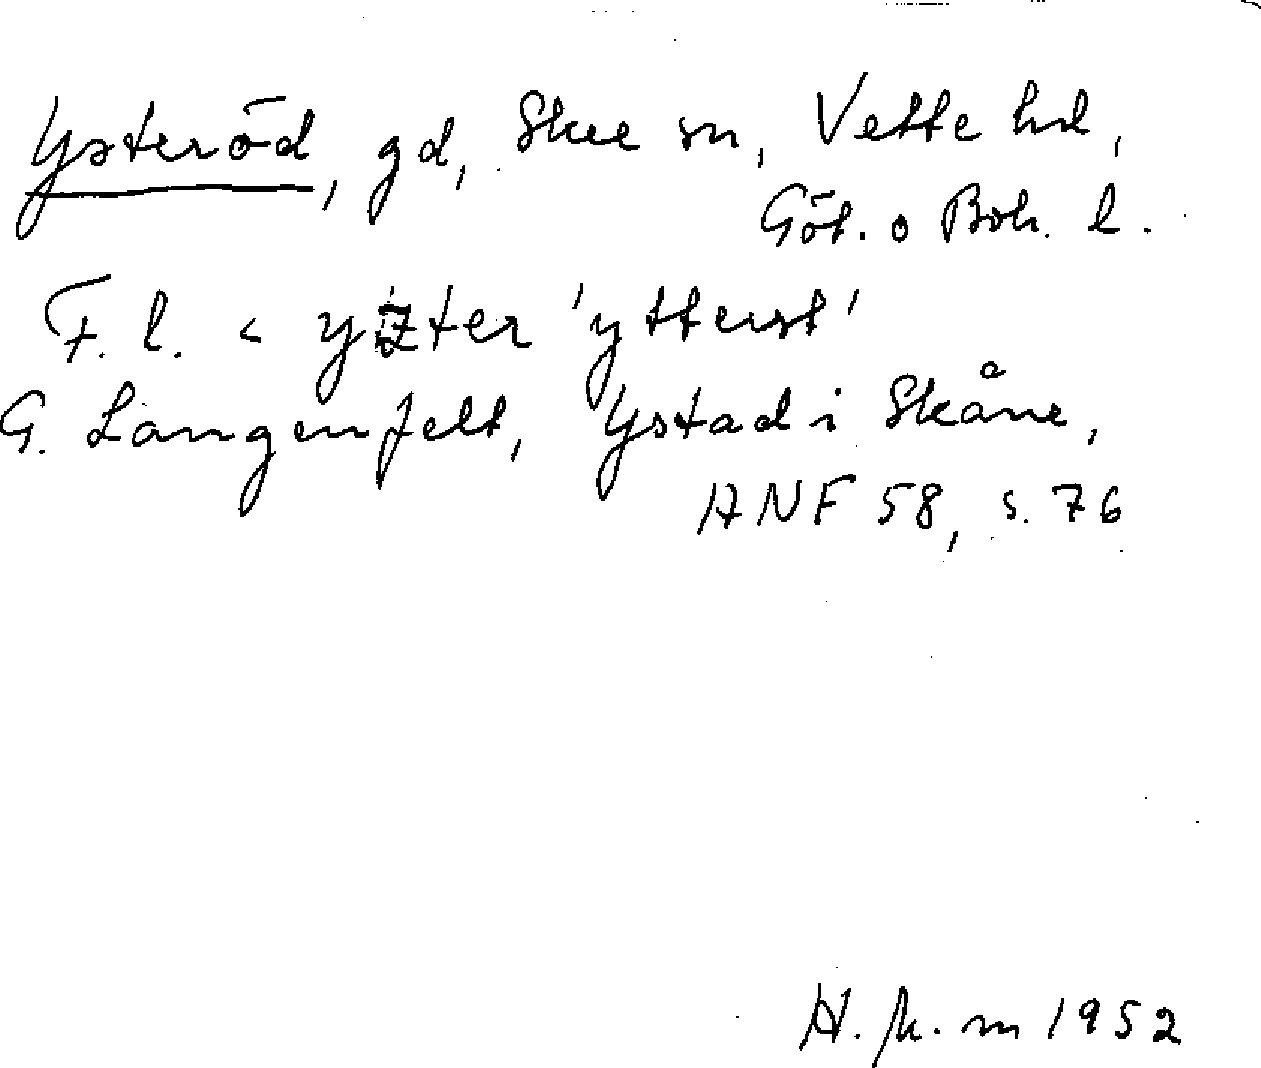 Ysteröd, gd, Skee sn, Vette hd,
Göt. o Boh. l.
F. l. < yzter 'ytterst'
G. Langenfelt, Ystad i Skåne,
ANF 58, s. 76
1952